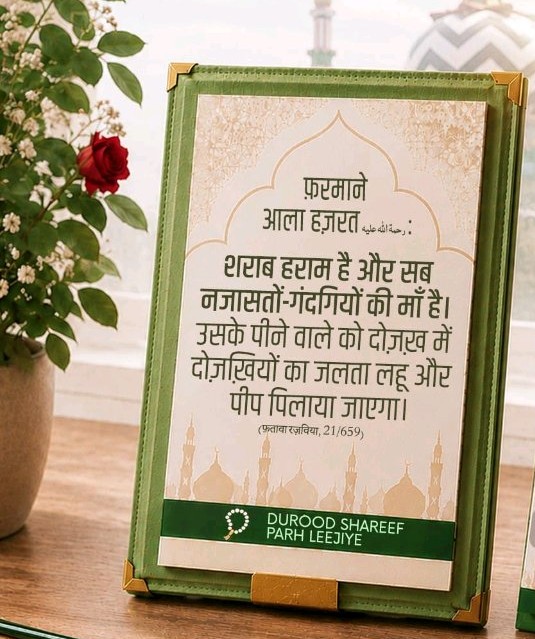 फ़रमाने
आला हज़रत رحمة الله عليه :
शराब हराम है और सब
नजासतों-गंदगियों की माँ है।
उसके पीने वाले को दोज़ख़ में
दोज़ख़ियों का जलता लहू और
पीप पिलाया जाएगा।
(फ़तावा रज़विया, 21/659)
DUROOD SHAREEF
PARH LEEJIYE